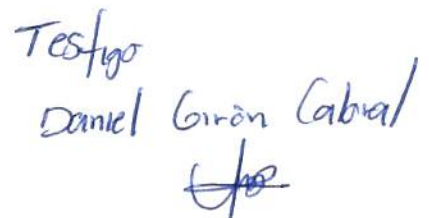 Testigo
Daniel Girón Cabral